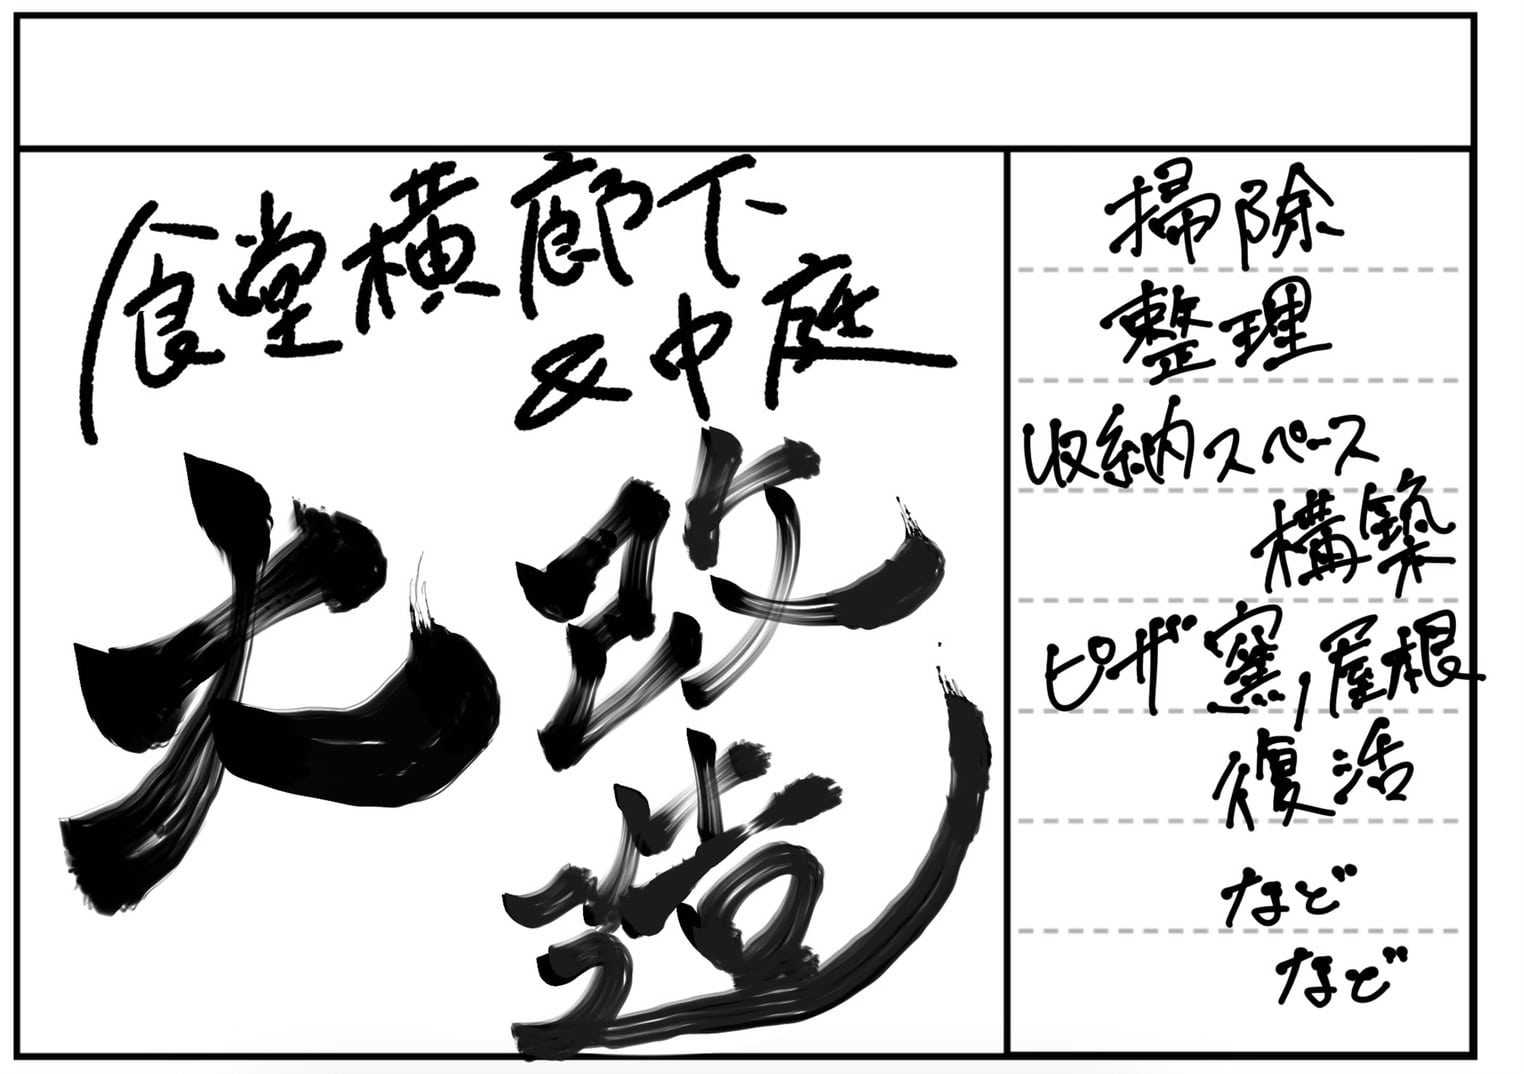 食堂横廊下
&中庭
大改造
掃除
整理
収納スペース
構築
ピザ窯,屋根
復活
など
など